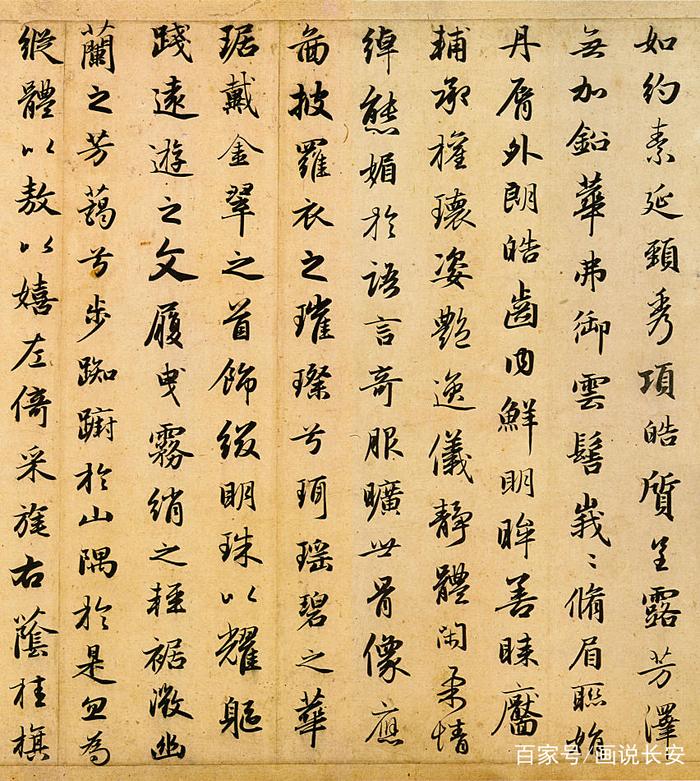 如約素延頸秀項皓質呈露芳澤
無加鉛華弗御雲髻峩〻脩眉聯娟
丹脣外朗皓齒内鮮明眸善睞靨
輔承權瓌姿艷逸儀靜體閑柔情
綽態媚於語言奇服曠世骨像應
啚披羅衣之璀璨兮珥瑶碧之華
琚戴金翠之首飾綴明珠以耀軀
踐遠遊之文履曳霧綃之輕裾微幽
蘭之芳藹兮步踟躕於山隅於是忽為
縱體以敖以嬉左倚采旄右蔭桂旗
百家号/画说长安